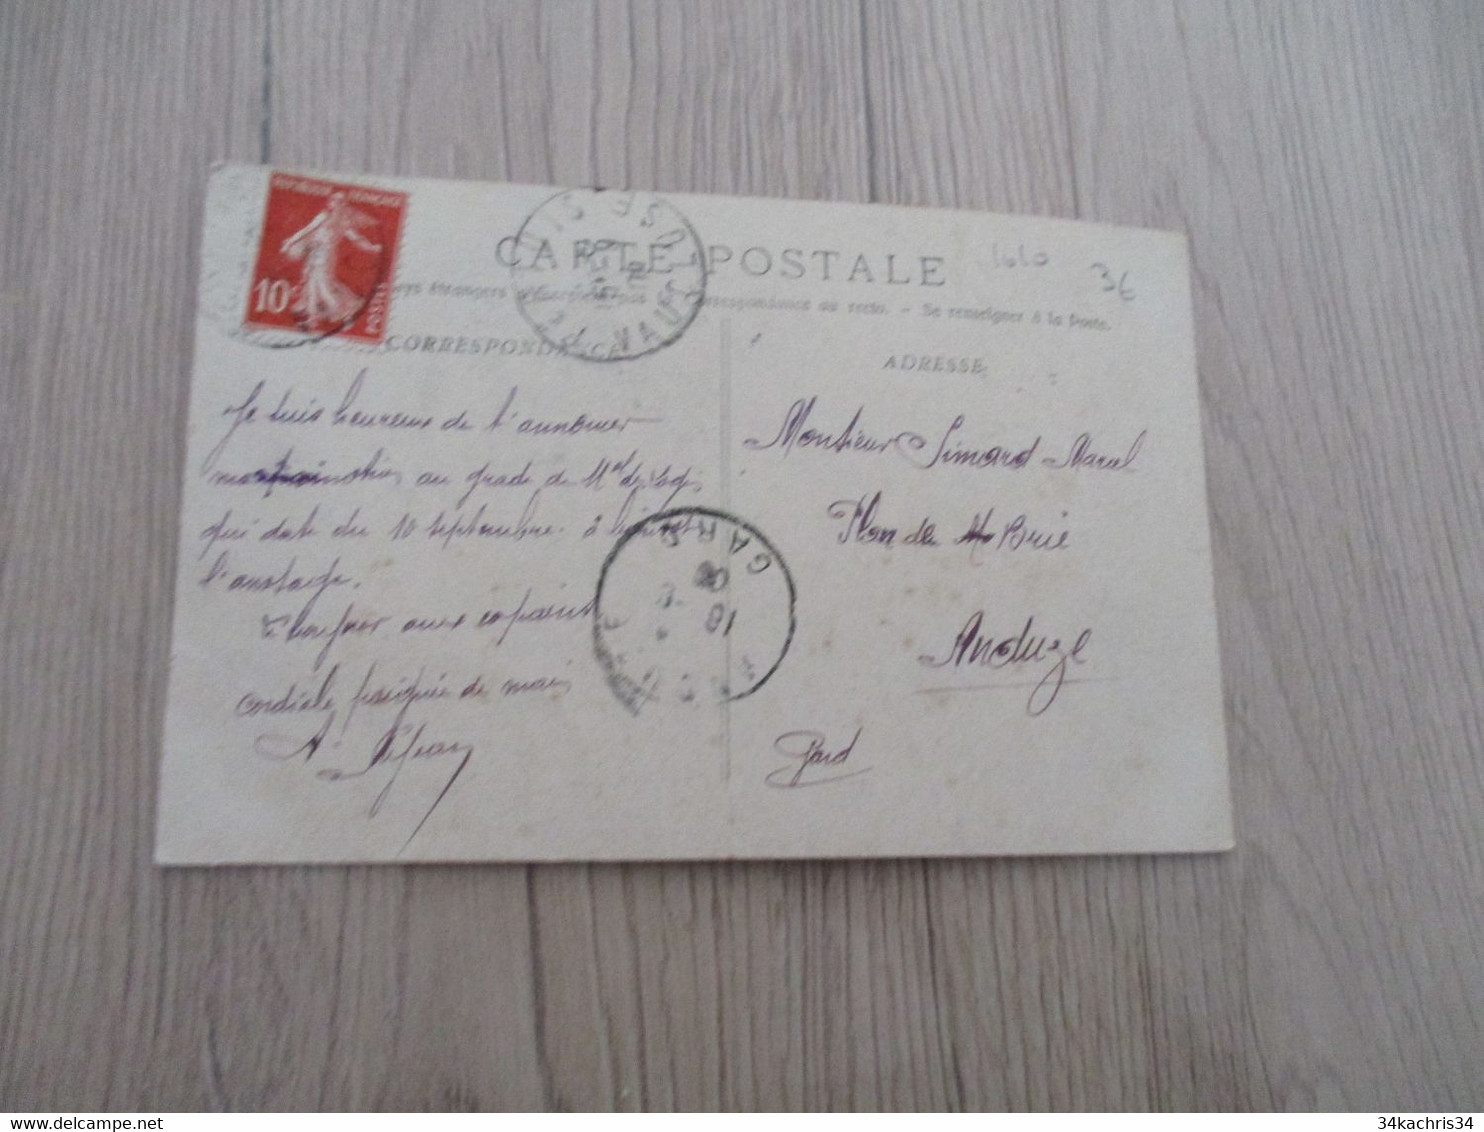 REPUBLIQUE FRANÇAISE
10c POSTES
VAUCLUSE
CARTE POSTALE
1610 3€
pays étrangers correspondance au recto. - Se renseigner à la Poste.
CORRESPONDANCE
ADRESSE
Je suis heureux de t'annoncer
ma nomination au grade de Mal des logis
qui date du 10 septembre à
l'avantage.
Bonjour aux copains
cordiale poignée de main
A.
Monsieur Simard Marcel
Plan de Brie
Anduze
Gard
GARD
10
34kachris34